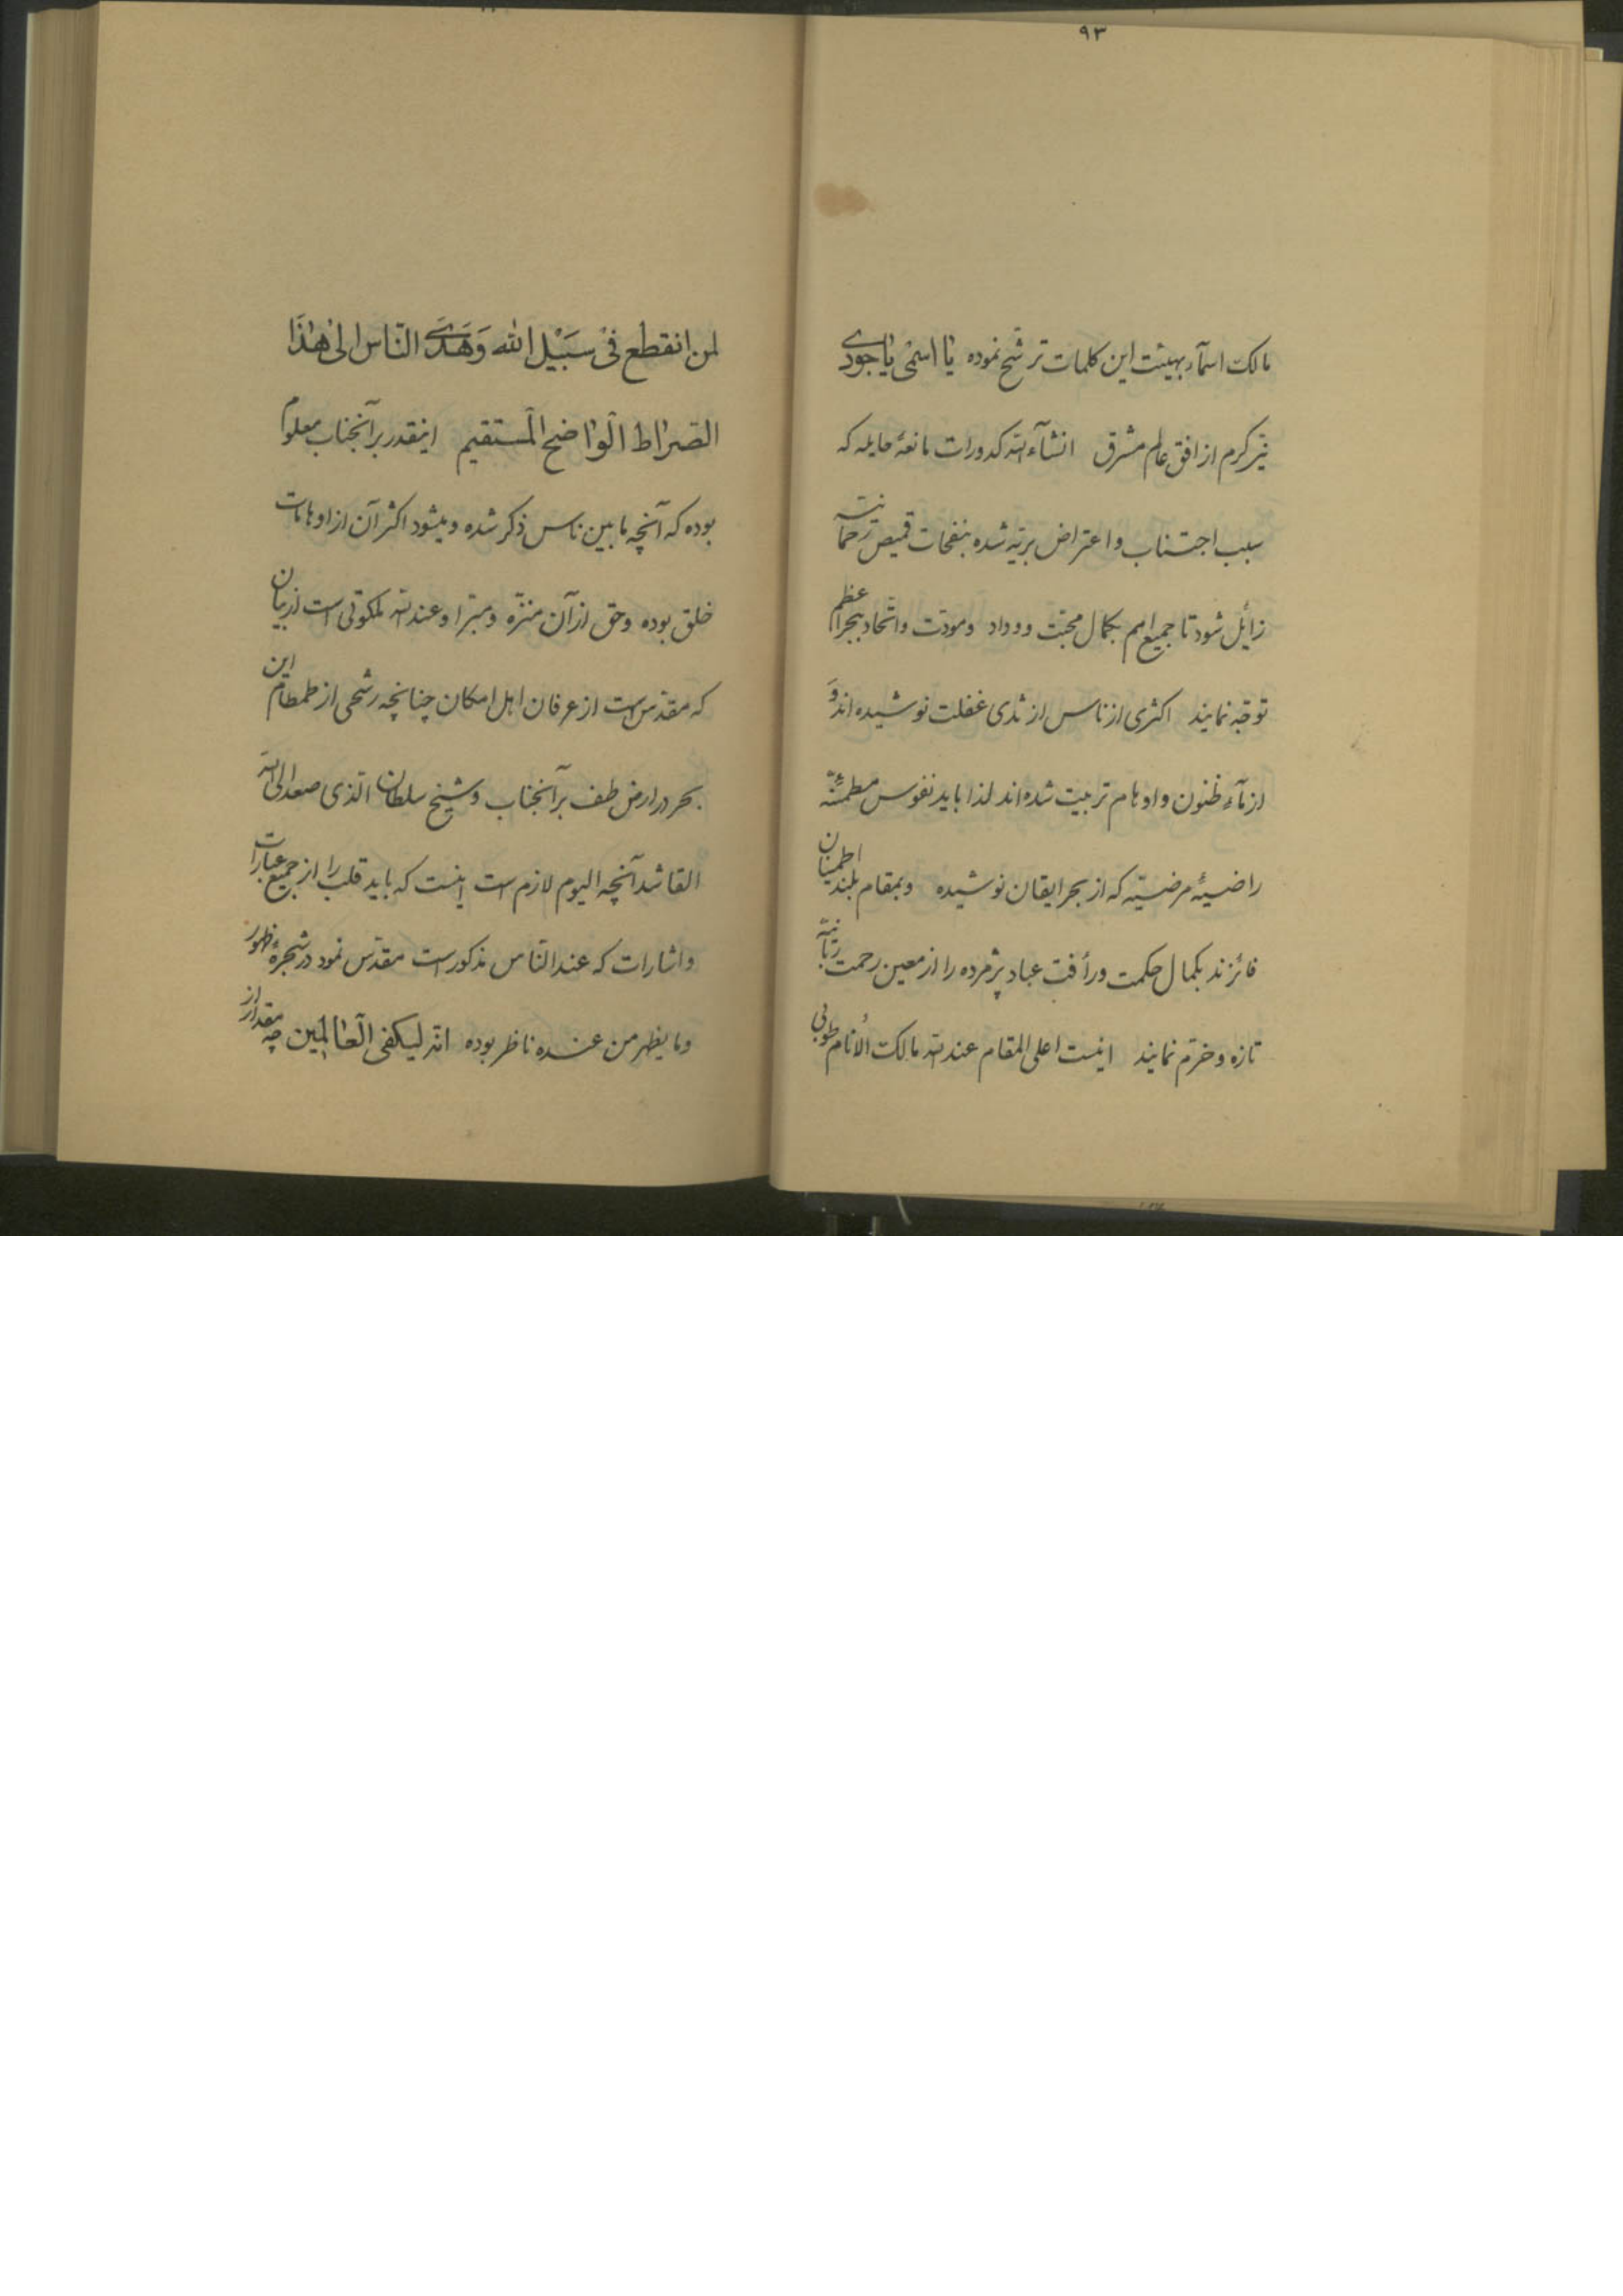 ۹۳
مالک اسمآء بهیئت این کلمات ترشّح نموده یا اسمی یا جودی
نیّر کرم از افق عالم مشرق انشآءالله کدورات مانعهٔ حایله که
سبب اجتناب و اعتراض بریّه شده بنفحات قمیص رحمانیّه
زایٔل شود تا جمیع امم بکمال محبّت و وداد و مودّت و اتّحاد ببحر اعظم
توجّه نمایند اکثری از ناس از ثدی غفلت نوشیده‌اند وَ
از مآء ظنون و اوهام تربیت شده‌اند لذا باید نفوس مطمئنّه
راضیهٔ مرضیّه که از بحر ایقان نوشیده و بمقام بلند اطمینان
فائزند بکمال حکمت و رأفت عباد پژمرده را از معین رحمت ربّانیّه
تازه و خرّم نمایند اینست اعلی المقام عندالله مالک الأنام طوبی
لمن انقطع فی سَبیْل الله وَهَدَی النّاس الی هٰذَا
الصّراط الْواضح المْستقیم اینقدر بر آنجناب معلوم
بوده که آنچه مابین ناس ذکر شده و میشود اکثر آن از اوهامات
خلق بوده و حق از آن منزّه و مبّرا و عندالله ملکوتی است از بیان
که مقدّس است از عرفان اهل امکان چنانچه رشحی از طمطام این
بحر در ارض طف بر آنجناب و شیخ سلطان الّذی صعد الی الله
القا شد آنچه الیوم لازم است اینست که باید قلب را از جمیع عبارات
و اشارات که عندالنّاس مذکور است مقدّس نمود در شجرهٔ ظهور
و ما یظهر من عنده ناظر بوده انّه لیکفی الْعالمِین چه مقدار از